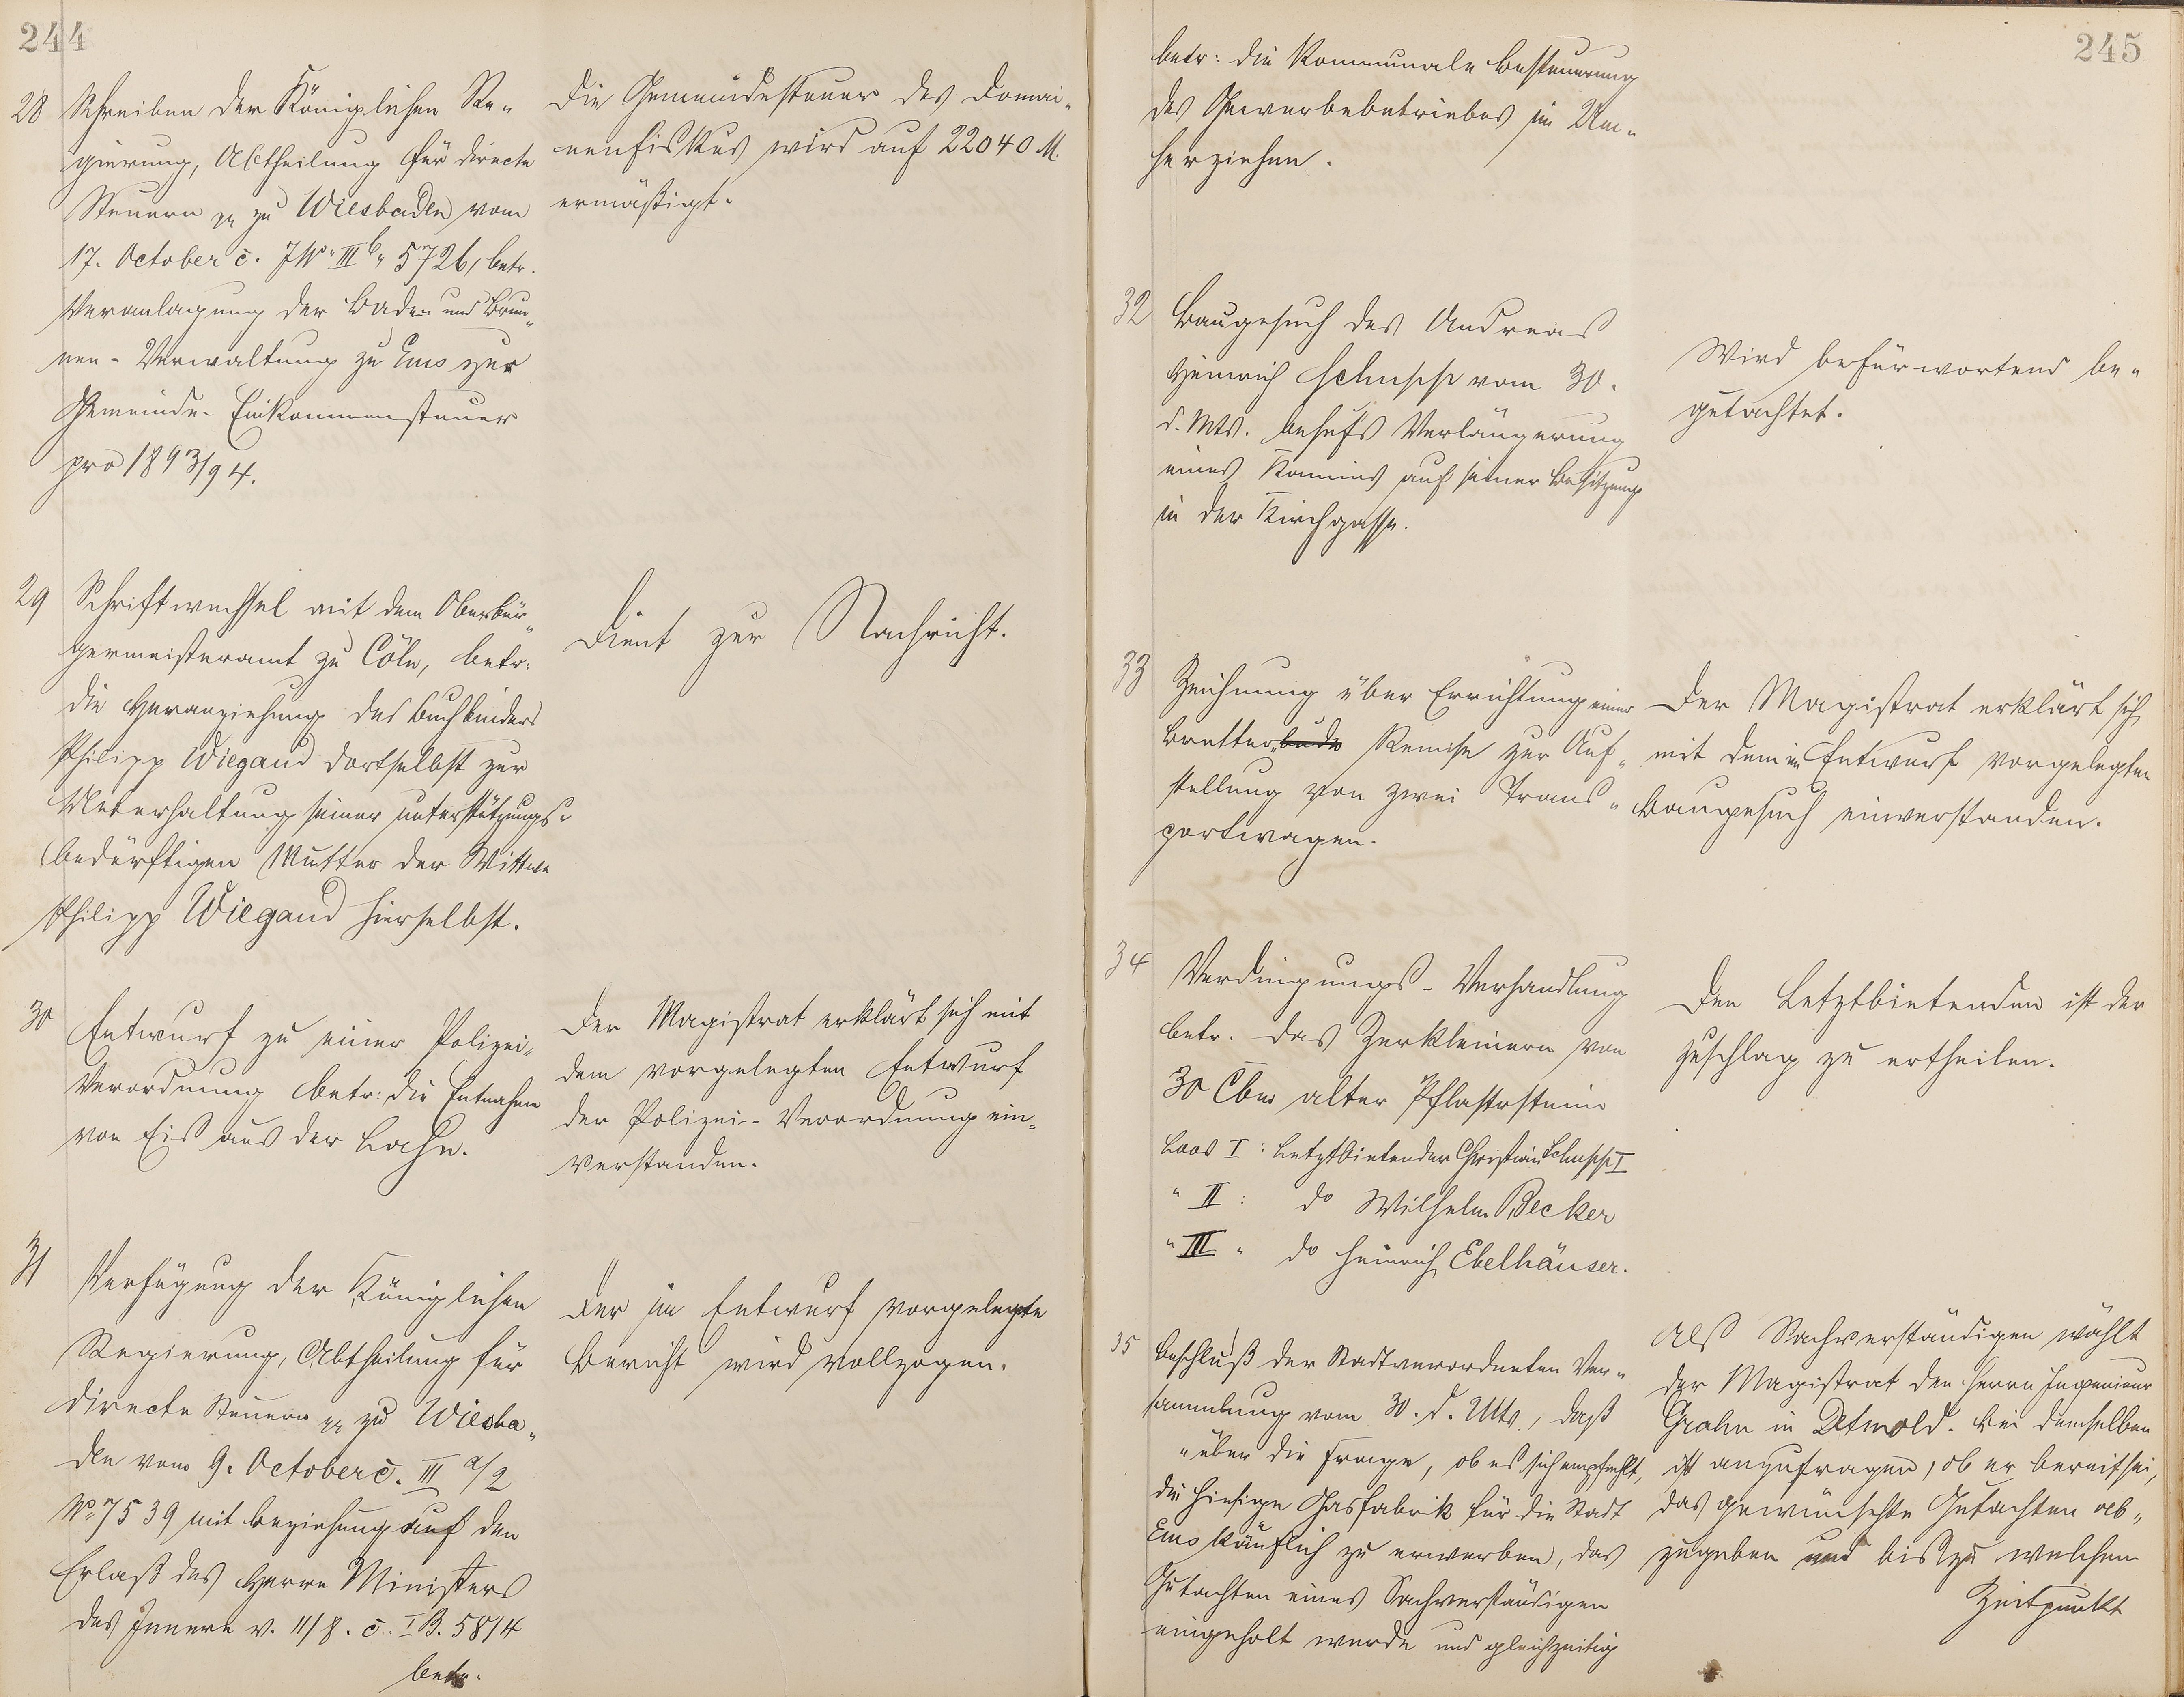 244
28 Schreiben der Königlichen Re-
gierung, Abtheilung für directe
Steuern pp zu Wiesbaden vom
17. October c. JNo. IIIb. 5726, betr.
Veranlagung der Bade- und Brun-
nen-Verwaltung zu Ems zur
Gemeinde-Einkommensteuer
pro 1893/94.
Die Gemeindesteuer des Domai-
nenfiskus wird auf 22040 M.
ermäßigt.
29 Schriftwechsel mit dem Oberbür-
germeisteramt zu Cöln, betr.
die Heranziehung des Buchbinders
Philipp Wiegand dortselbst zur
Unterhaltung seiner unterstützungs-
bedürftigen Mutter der Wittwe
Philipp Wiegand hierselbst.
Dient zur Nachricht.
30 Entwurf zu einer Polizei-
Verordnung betr: die Entnahme
von Eis aus der Lahn.
Der Magistrat erklärt sich mit
dem vorgelegten Entwurf
der Polizei-Verordnung ein-
verstanden.
31 Verfügung der Königlichen
Regierung, Abtheilung für
directe Steuern pp zu Wiesba-
den vom 9. October c. III a/2
No 7539 mit Beziehung auf den
Erlaß des Herrn Ministers
des Innern v. 11/8. c. I B. 5814
betr.
Der im Entwurf vorgelegte
Bericht wird vollzogen.
245
betr: die Kommunale Besteuerung
des Gewerbebetriebes im Um-
herziehen.
32 Baugesuch des Andreas
Heinrich Schupp vom 30.
d. Mts. behufs Verlängerung
eines Kamins auf seiner Besitzung
in der Kirchgasse.
Wird befürwortend be-
gutachtet.
33 Zeichnung über Errichtung einer
Bretterbude Remise zur Auf-
stellung von zwei Trans-
portwagen.
Der Magistrat erklärt sich
mit dem im Entwurf vorgelegten
Baugesuch einverstanden.
34 Verdingungs-Verhandlung
betr. das Zerkleinern von
30 Cbm alter Pflastersteine
Loos I: Letztbietender Christian Schupp I
" II: do Wilhelm Becker
" III " do Heinrich Ebelhäuser.
Den Letztbietenden ist der
Zuschlag zu ertheilen.
35 Beschluß der Stadtverordneten Ver-
sammlung vom 30. d. Mts., daß
"über die Frage, ob es sich empfiehlt,
die hiesige Gasfabrik für die Stadt
Ems käuflich zu erwerben, das
Gutachten eines Sachverständigen
eingeholt werde und gleichzeitig
Als Sachverständigen wählt
der Magistrat den Herrn Ingenieur
Grahn in Detmold. Bei demselben
ist anzufragen, ob er bereit sei,
das gewünschte Gutachten ab-
zugeben und bis zu welchem
Zeitpunkt